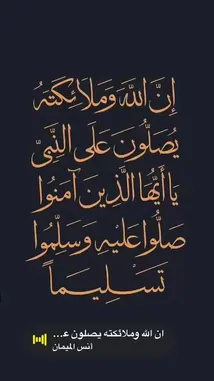 إِنَّ اللَّهَ وَمَلَائِكَتَهُ
يُصَلُّونَ عَلَى النَّبِيِّ
يَا أَيُّهَا الَّذِينَ آمَنُوا
صَلُّوا عَلَيْهِ وَسَلِّمُوا
تَسْلِيمًا
ان الله وملائكته يصلون عـ...
انس الميمان